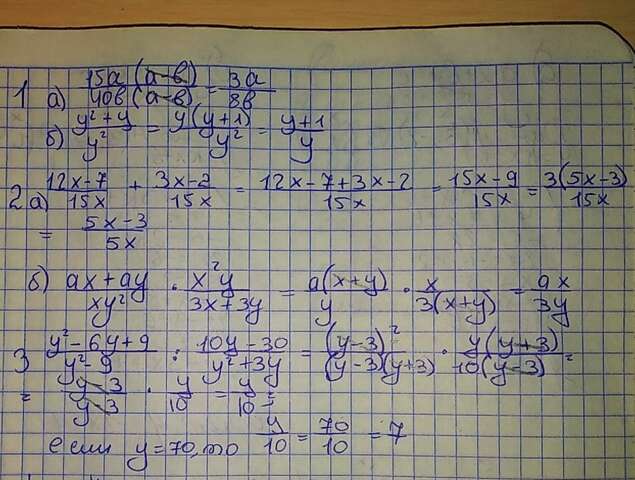 1 а) 15a(a-в)/40в(a-в) = 3a/8в
б) (y²+y)/y² = y(y+1)/y² = (y+1)/y
2 а) (12x-7)/15x + (3x-2)/15x = (12x-7+3x-2)/15x = (15x-9)/15x = 3(5x-3)/15x
= (5x-3)/5x
б) (ax+ay)/xy² · x²y/(3x+3y) = a(x+y)/y · x/3(x+y) = ax/3y
3 (y²-6y+9)/(y²-9) : (10y-30)/(y²+3y) = (y-3)²/(y-3)(y+3) · y(y+3)/10(y-3) =
= (y-3)/(y-3) · y/10 = y/10 =
если y=70, то y/10 = 70/10 = 7